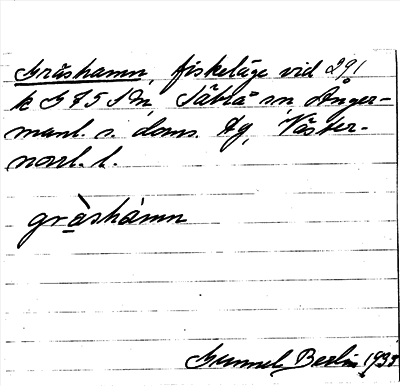 Gråshamn, fiskeläge vid 291
k G 75 SM, Säbrå sn, Ånger-
manl. s. doms. Ag, Väster-
norrl. l.
gràshámn
Gunnel Berlin 1933